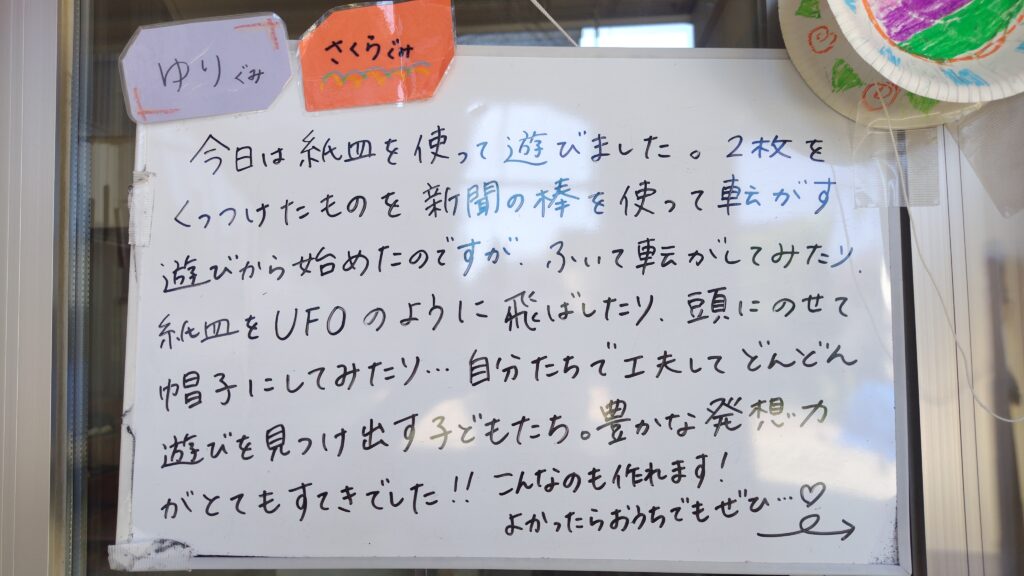 ゆりぐみ
さくらぐみ
今日は紙皿を使って遊びました。2枚を
くっつけたものを新聞の棒を使って転がす
遊びから始めたのですが、ふいて転がしてみたり、
紙皿をUFOのように飛ばしたり、頭にのせて
帽子にしてみたり…自分たちで工夫してどんどん
遊びを見つけ出す子どもたち。豊かな発想力
がとてもすてきでした!!
こんなのも作れます!
よかったらおうちでもぜひ…♡